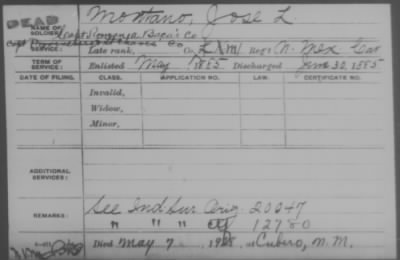 DEAD
NAME OF SOLDIER: Montano, Jose L
Capt Romenza Baca's Co
SERVICE: Late rank, Co. L N M Reg't N. Mex Cav
TERM OF SERVICE: Enlisted May 1855 Discharged June 30, 1855
DATE OF FILING. CLASS. APPLICATION NO. LAW. CERTIFICATE NO.
Invalid,
Widow,
Minor,
ADDITIONAL SERVICES:
REMARKS: See Ind Sur Orig. 20247
" " " Ctf 12780
Died May 7, 1928, at Cubero, N.M.